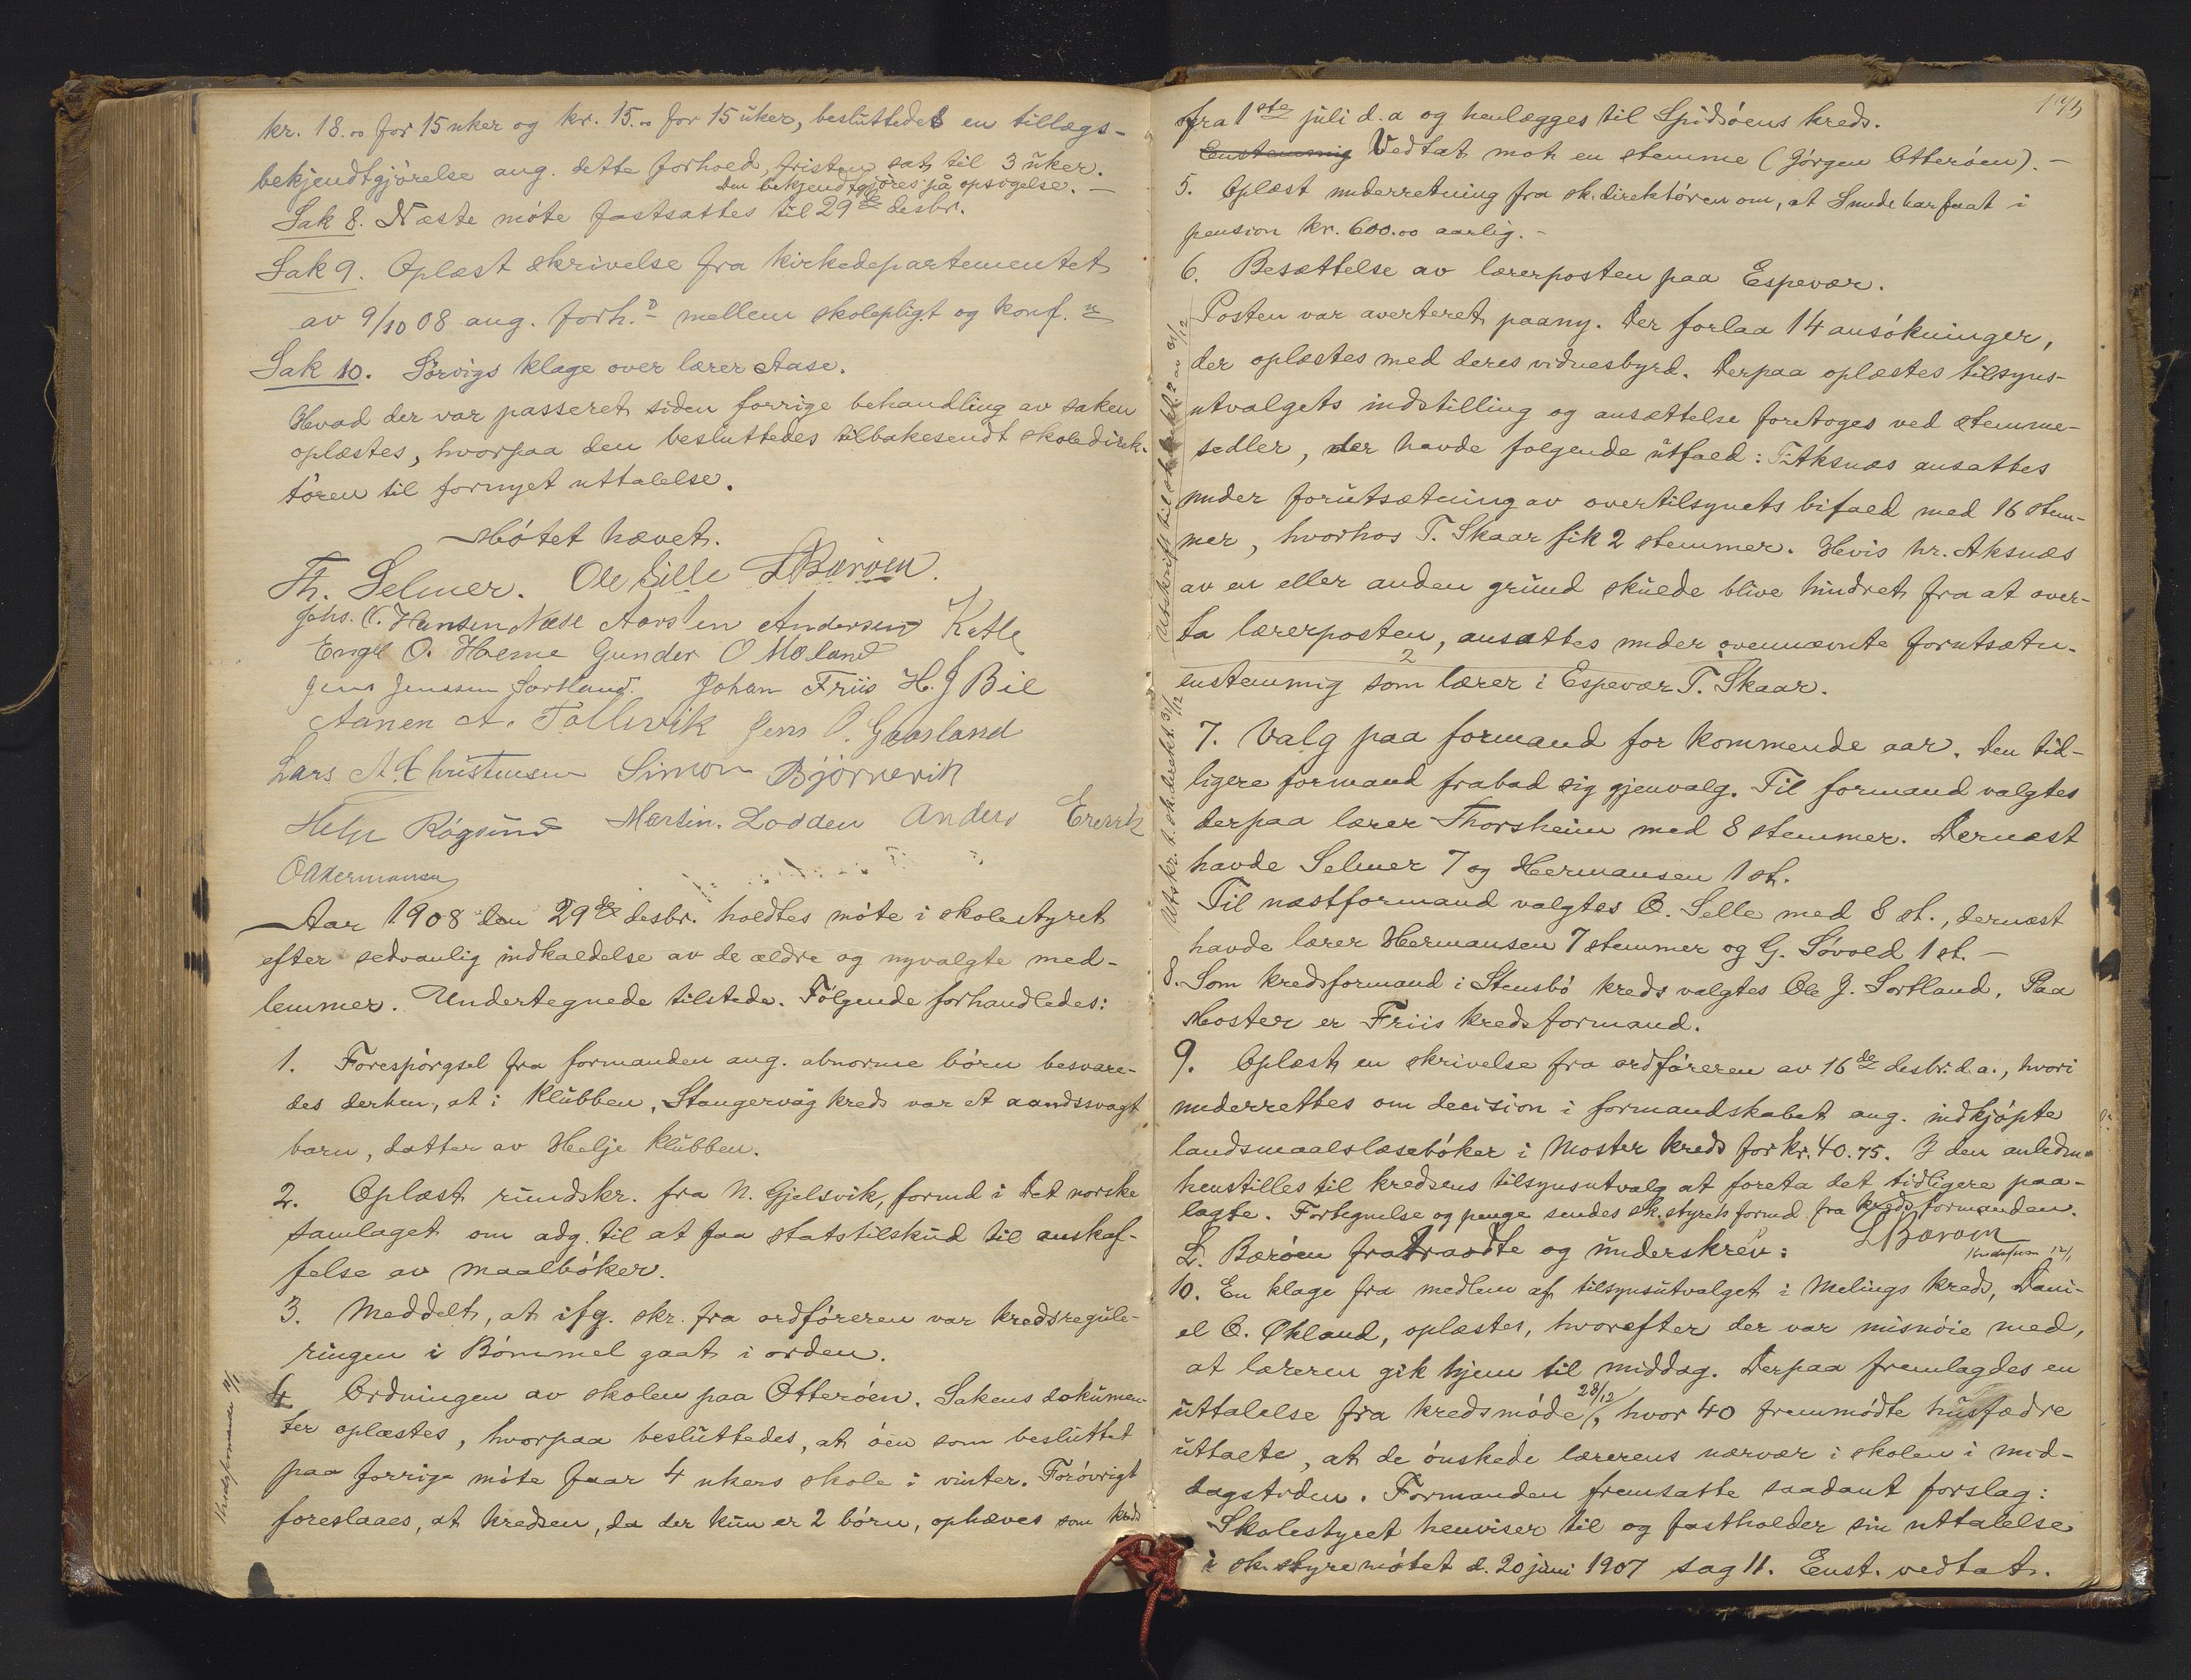 kr. 18.00 for 15 uker og kr. 15.00 for 15 uker, besluttedes en tillægs-
bekjendtgjörelse ang. dette forhold, fristen sat til 3 uker.
Den bekjendtgjöres på opsigelse. —
Sak 8. Næste möte fastsattes til 29de desbr.
Sak 9. Oplæst skrivelse fra kirkedepartementet
av 9/10 08 ang. forh. mellem skolepligt og konf.
Sak 10. Sörvigs klage over lærer Aase.
Hvad der var passeret siden forrige behandling av saken
oplæstes, hvorpaa den besluttedes tilbakesendt skoledirek-
tören til fornyet uttalelse.
Mötet hævet.
Th. Selmer. Ole Selle L Bæröen.
Johs. C. Hansen Næse Aorsten Andersen Katle
Engel O. Hovme Gunder O Moland
Jens Jenssen Sortland. Johan Friis H. J Bie
Aanen A. Follivik Jens O. Gaasland
Lars A. Christensen Simon Björnevik
Helge Rögsund Martin. Lodden Anders
O Hermansen
Aar 1908 den 29de desbr. holdtes möte i skolestyret
efter sedvanlig indkaldelse av de ældre og nyvalgte med-
lemmer. Undertegnede tilstede. Fölgende forhandledes:
1. Forespörgsel fra formanden ang. abnorme börn besvare-
des derhen, at i Klubben, Stangervåg kreds var et aandssvagt
barn, datter av Helje Klubben.
2. Oplæst rundskr. fra N. Gjelsvik, formd i Det norske
samlaget om adg. til at faa statstilskud til anskaf-
felse av maalböker.
3. Meddelt, at ifg. skr. fra ordföreren var kredsregule-
ringen i Bömmel gaat i orden.
Kredsformand
4. Ordningen av skolen paa Otteröen. Sakens dokumen-
ter oplæstes, hvorpaa besluttedes, at öen som besluttet
paa forrige möte faar 4 ukers skole i vinter. Forövrigt
foreslaaes, at kredsen, da der kun er 2 börn, ophæves som kreds
fra 1ste juli d.a og henlægges til Spidsöens kreds.
Enstemmig Vedtat mot en stemme (Jörgen Otteröen). —
5. Oplæst underretning fra sk.direktören om, at Smude har faat i
pension kr. 600.00 aarlig. —
6. Besættelse av lærerposten paa Espevær.
Posten var averteret paany. Der forlaa 14 ansökninger,
der oplæstes med deres vidnesbyrd. Derpaa oplæstes tilsyns-
utvalgets indstilling og ansættelse foretoges ved stemme-
sedler, der havde folgende utfald: T. Aksnæs ansattes
under forutsætning av overtilsynets bifald med 16 stem-
mer, hvorhos T. Skaar fik 2 stemmer. Hvis hr. Aksnæs
av en eller anden grund skulde blive hindret fra at over-
ta lærerposten, ansættes under ovennævnte forutsætn.
enstemmig som lærer i Espevær T. Skaar.
7. Valg paa formand for kommende aar. Den tid-
ligere formand frabad sig gjenvalg. Til formand valgtes
derpaa lærer Thorsheim med 8 stemmer. Dernæst
havde Selmer 7 og Hermansen 1 st.
Til næstformand valgtes O. Selle med 8 st., dernæst
havde lærer Hermansen 7 stemmer og G. Sövold 1 st. —
8. Som kredsformand i Stensbö kreds valgtes Ole J. Sortland. Paa
Moster er Friis kredsformand.
9. Oplæst en skrivelse fra ordföreren av 16de desbr. d.a., hvori
underrettes om decision i formandskabet ang. indkjöpte
landsmaalslæseböker i Moster kreds for kr. 40.75. I den anledn.
henstilles til kredsens tilsynsutvalg at foreta det tidligere paa-
lagte. Fortegnelse og penge sendes sk.styrets formd. fra kredsformanden.
L. Bæröen fratraadte og underskrev: L Bæröen
10. En klage fra medlem af tilsynsutvalget i Melings kreds, Dani-
el O. Økland, oplæstes, hvorefter der var misnöie med,
at læreren gik hjem til middag. Derpaa fremlagdes en
uttalelse fra kredsmöde 28/12, hvor 40 fremmödte husfædre
uttalte, at de önskede lærerens nærvær i skolen i mid-
dagstiden. Formanden fremsatte saadant forslag:
Skolestyret henviser til og fastholder sin uttalelse
i sk.styremötet d. 20 juni 1907 sag 11. Enst. vedtat.